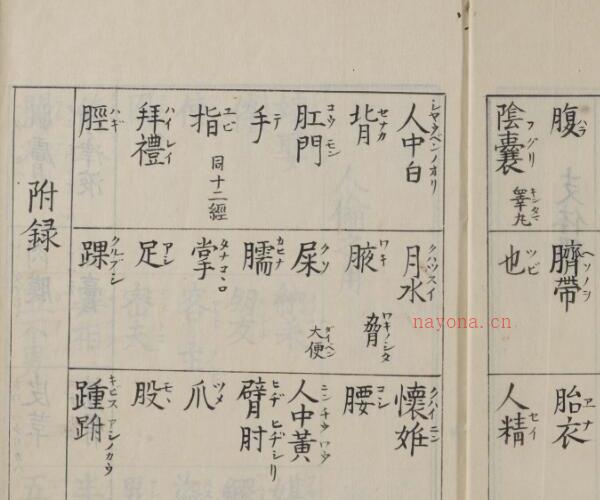 腹 ハラ
臍帶 ヘソノヲ
胎衣 エナ
陰嚢 フグリ 睾丸 キンタマ
也 ツビ
人精 セイ
人中白 シヤウベンノオリ
月水 クハツスイ
懐妊 クハイニン
背 セナカ
腋 ワキ 脅 ワキノシタ
腰 コシ
肛門 コウモン
屎 クソ 大便 ダイベン
人中黄 ニンチウワウ
手 テ
臑 カヒナ
臂肘 ヒヂ ヒヂシリ
指 ユビ 同十二經
掌 タナコヽロ
爪 ツメ
拜禮 ハイレイ
足 アシ
股 モヽ
脛 ハギ
踝 クルブシ
踵跗 キビス アシノカウ
附録
nayona.cn